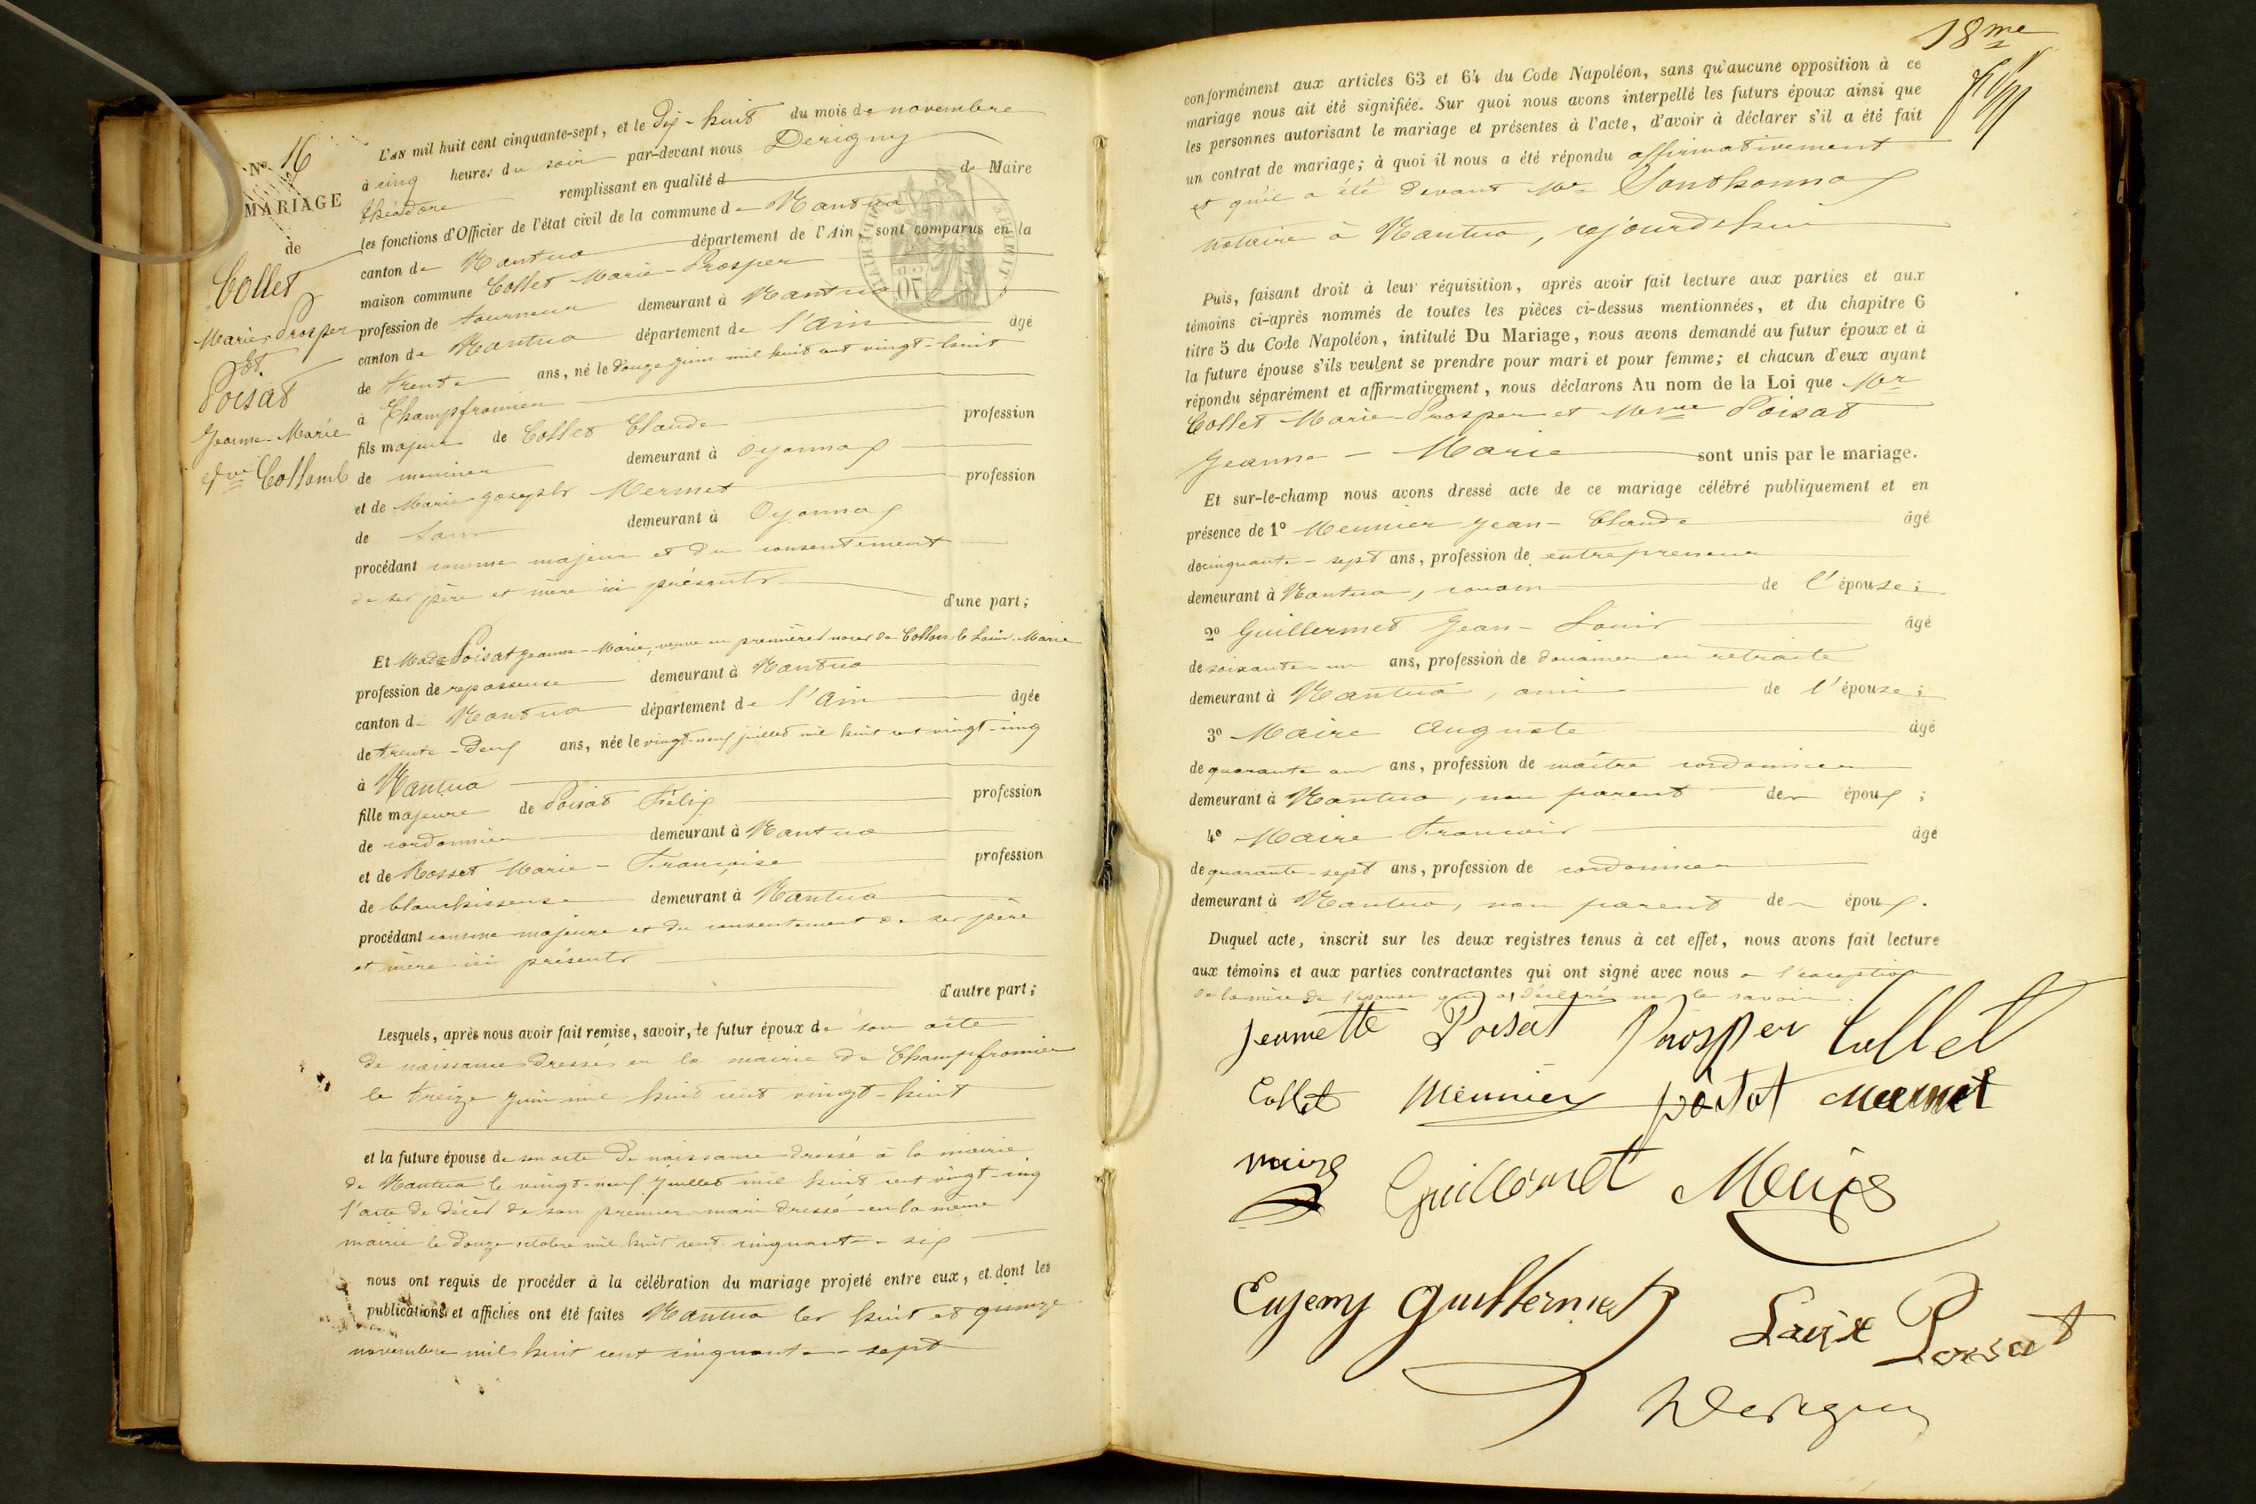 N° 16
MARIAGE
de
Collet
Marie-Prosper
Et
Poisat
Jeanne-Marie
Vve Collomb
L'AN mil huit cent cinquante-sept, et le Dix-huit du mois de novembre
à cinq heures du soir par-devant nous Derigny
théodore remplissant en qualité de Maire
les fonctions d'Officier de l'état civil de la commune de Nantua
canton de Nantua département de l'Ain, sont comparus en la
maison commune Collet Marie-Prosper
profession de tourneur demeurant à Nantua
canton de Nantua département de l'Ain âgé
de trente ans, né le douze juin mil huit cent vingt-huit
à Champfromier
fils majeur de Collet Claude profession
de menuisier demeurant à Oyonnax
et de Marie-Joseph Mermet profession
de sans demeurant à Oyonnax
procédant comme majeur et du consentement
de ses père et mère ici présents
d'une part;
Et Made Poisat Jeanne-Marie, veuve en premières noces de Collomb Louis-Marie
profession de repasseuse demeurant à Nantua
canton de Nantua département de l'Ain âgée
de trente-deux ans, née le vingt-neuf juillet mil huit cent vingt-cinq
à Nantua
fille majeure de Poisat Félix profession
de cordonnier demeurant à Nantua
et de Rosset Marie-Françoise profession
de blanchisseuse demeurant à Nantua
procédant comme majeure et du consentement de ses père
et mère ici présents
d'autre part;
Lesquels, après nous avoir fait remise, savoir, le futur époux de son acte
de naissance dressé en la mairie de Champfromier
le treize juin mil huit cent vingt-huit
et la future épouse de son acte de naissance dressé à la mairie
de Nantua le vingt-neuf juillet mil huit cent vingt-cinq
l'acte de décès de son premier mari dressé en la même
mairie le douze octobre mil huit cent cinquante-six
nous ont requis de procéder à la célébration du mariage projeté entre eux, et dont les
publications et affiches ont été faites Nantua les huit et quinze
novembre mil huit cent cinquante-sept
18me
conformément aux articles 63 et 64 du Code Napoléon, sans qu'aucune opposition à ce
mariage nous ait été signifiée. Sur quoi nous avons interpellé les futurs époux ainsi que
les personnes autorisant le mariage et présentes à l'acte, d'avoir à déclarer s'il a été fait
un contrat de mariage; à quoi il nous a été répondu affirmativement
et qu'il a été devant Me Sonthonnax
notaire à Nantua, cejourd'hui
Puis, faisant droit à leur réquisition, après avoir fait lecture aux parties et aux
témoins ci-après nommés de toutes les pièces ci-dessus mentionnées, et du chapitre 6
titre 5 du Code Napoléon, intitulé Du Mariage, nous avons demandé au futur époux et à
la future épouse s'ils veulent se prendre pour mari et pour femme; et chacun d'eux ayant
répondu séparément et affirmativement, nous déclarons Au nom de la Loi que Mr
Collet Marie-Prosper et Mme Poisat
Jeanne-Marie sont unis par le mariage.
Et sur-le-champ nous avons dressé acte de ce mariage célébré publiquement et en
présence de 1° Meunier Jean-Claude âgé
de cinquante-sept ans, profession de entrepreneur
demeurant à Nantua, cousin de l'épouse;
2° Guillermet Jean-Louis âgé
de soixante-un ans, profession de douanier en retraite
demeurant à Nantua, ami de l'épouse;
3° Maire Auguste âgé
de quarante ans, profession de maître cordonnier
demeurant à Nantua, non parent des époux;
4° Maire François âgé
de quarante-sept ans, profession de cordonnier
demeurant à Nantua, non parent des époux.
Duquel acte, inscrit sur les deux registres tenus à cet effet, nous avons fait lecture
aux témoins et aux parties contractantes qui ont signé avec nous à l'exception
de la mère de l'épouse qui a déclaré ne le savoir.
Jeannette Poisat Prosper Collet
Collet Meunier Mermet
maire Guillermet
Eugeny Guillermet Poisat
Derigny